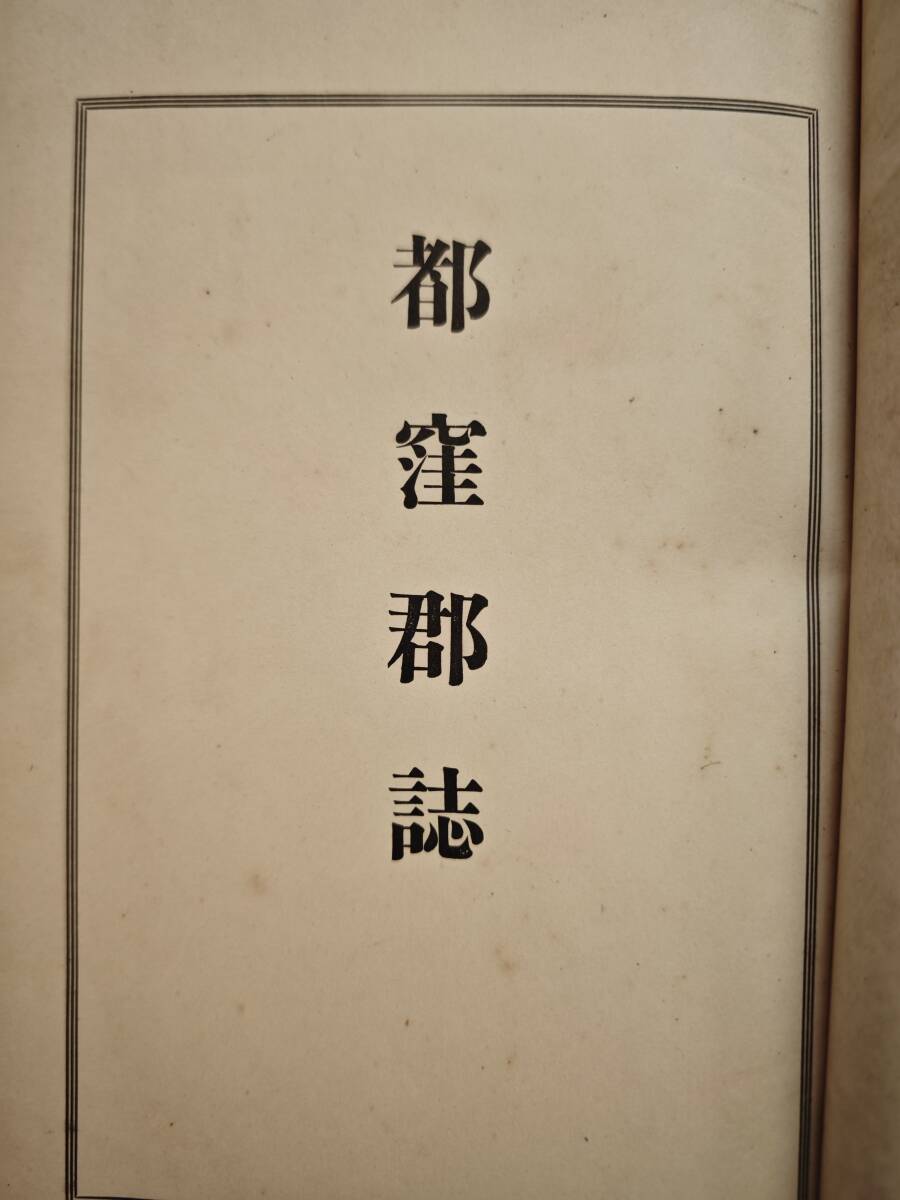 都窪郡誌